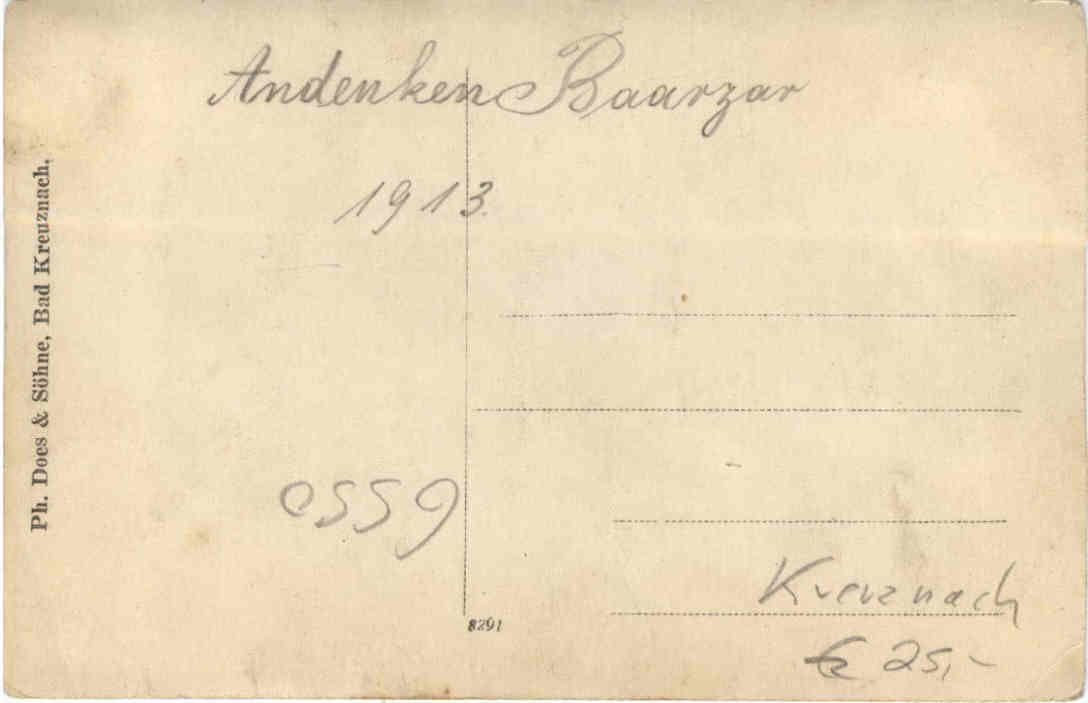 Andenken Baarzar
1913.
Ph. Does & Söhne, Bad Kreuznach.
0559
8291
Kreuznach
€ 25,-